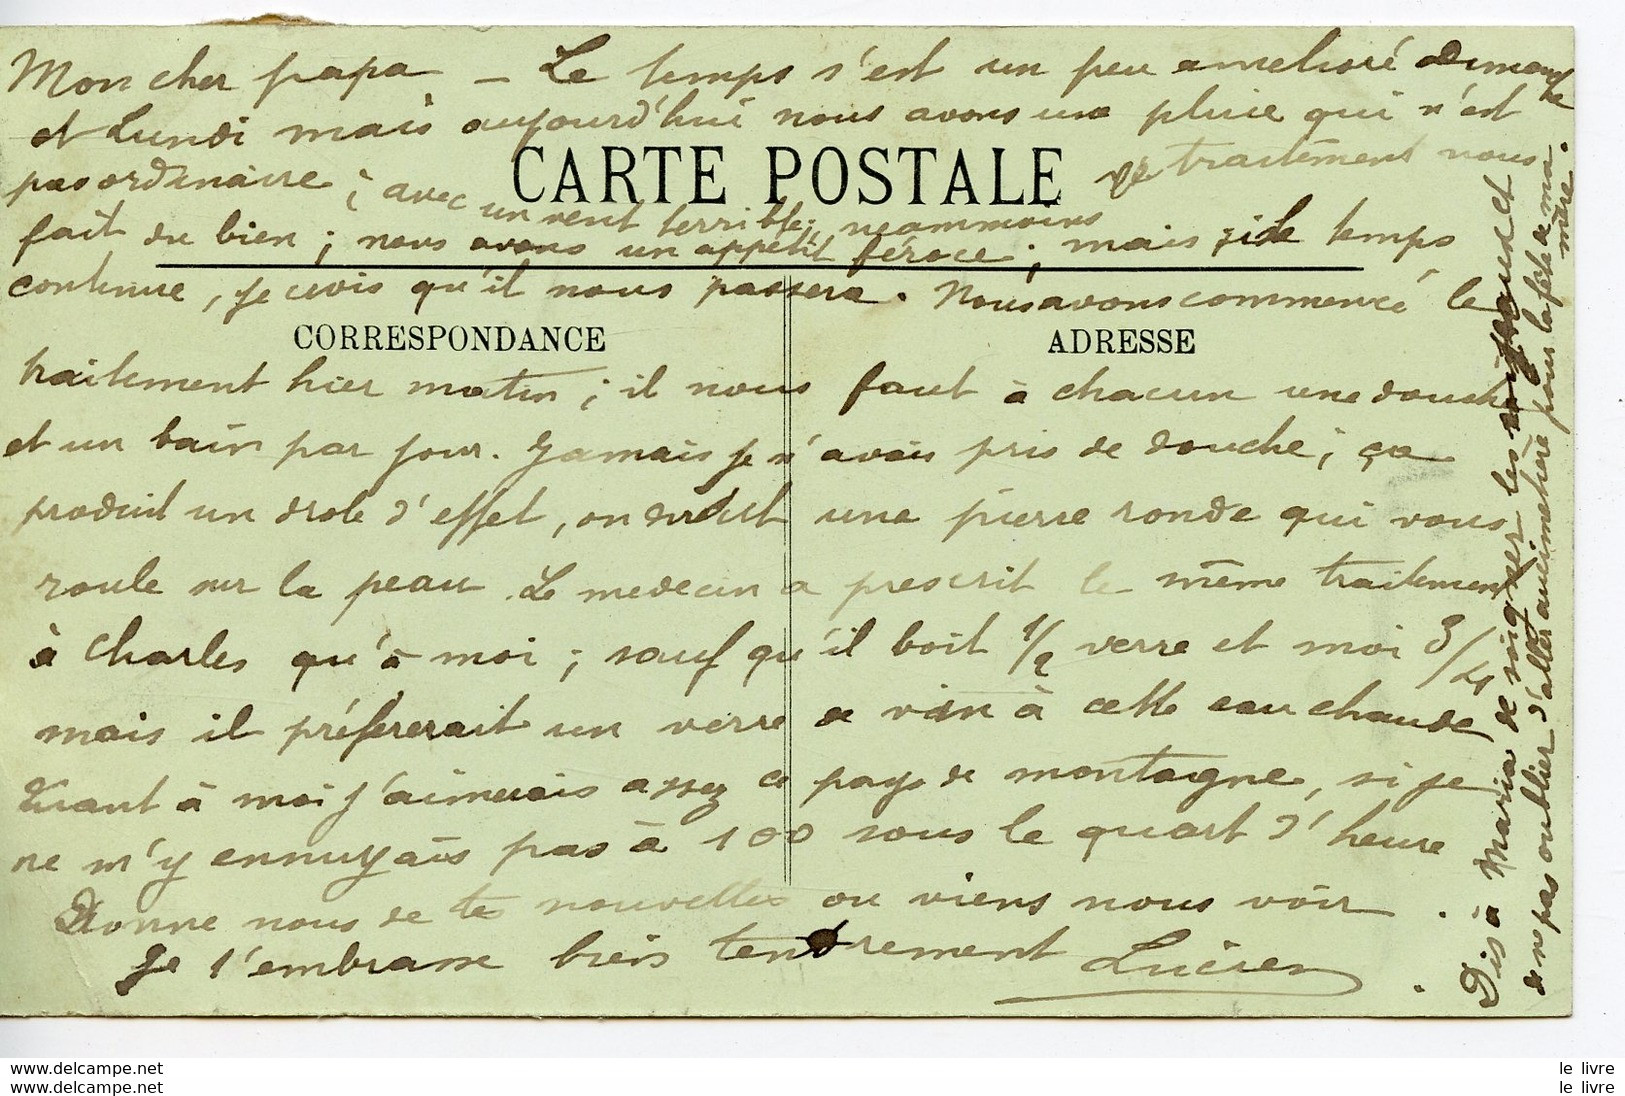 Mon cher papa – Le temps s'est un peu amelioré Dimanche
et Lundi mais aujourd'hui nous avons une pluie qui n'est
pas ordinaire ; avec un vent terrible ; neammoins le traitement nous
CARTE POSTALE
fait du bien ; nous avons un appétit féroce ; mais si le temps
continue, je crois qu'il nous passera. Nous avons commencé le
CORRESPONDANCE
ADRESSE
traitement hier matin ; il nous faut à chacun une douche
et un bain par jour. Jamais je n'avais pris de douche ; ça
produit un drole d'effet, on dirait une pierre ronde qui vous
roule sur la peau. Le medecin a prescrit le même traitement
à Charles qu'à moi ; sauf qu'il boit 1/2 verre et moi 3/4
mais il préfererait un verre de vin à cette eau chaude
Quant à moi j'aimerais assez ce pays de montagne, si je
ne m'y ennuyais pas à 100 sous le quart d'heure
Donne nous de tes nouvelles ou viens nous voir.
Je t'embrasse bien tendrement Lucien
Dis à Maria de soigner les et
de ne pas oublier d'aller au cimetière pour la fête de ma
mère.
le livre
le livre
www.delcampe.net
www.delcampe.net